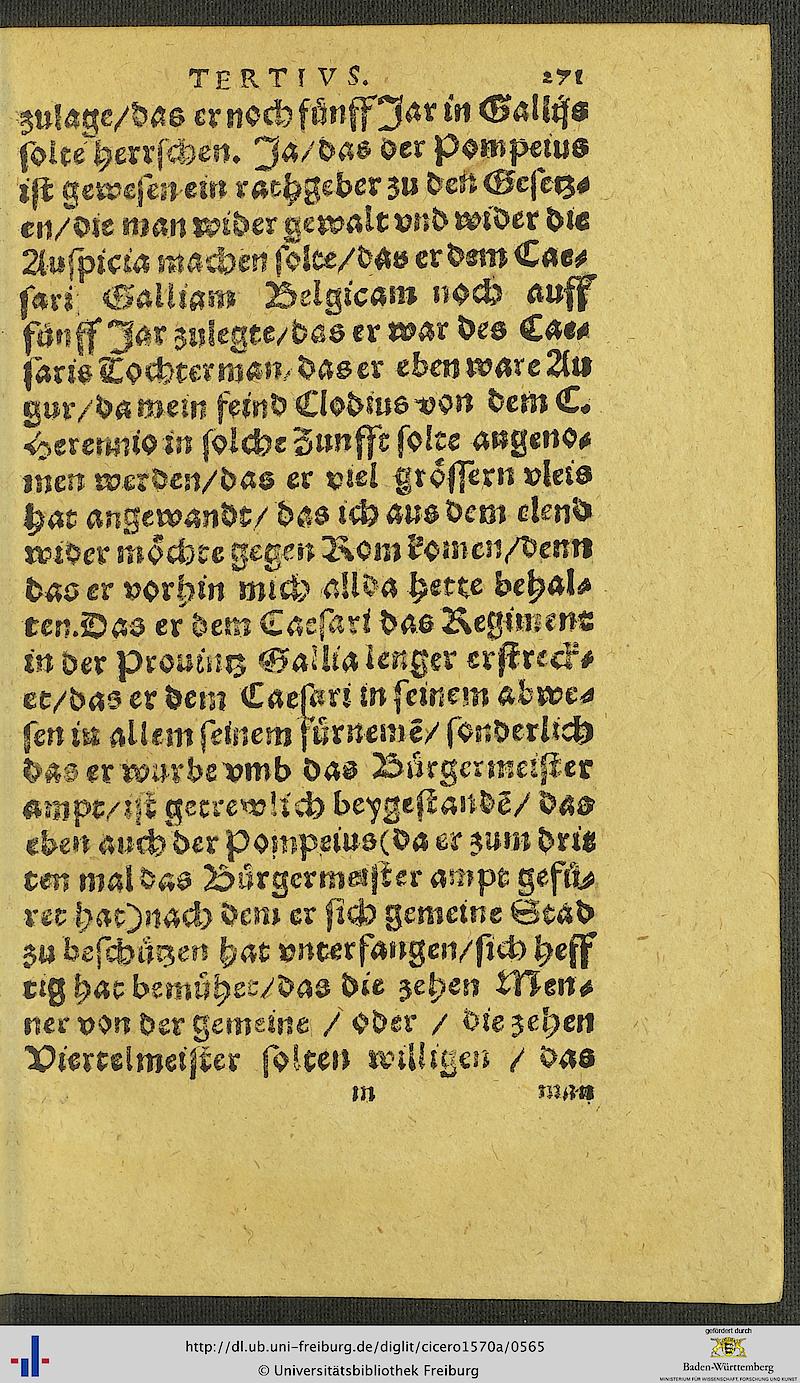 TERTIVS. 271
zulage/das er noch fünff Jar in Gallijs
solte herrschen. Ja/das der Pompeius
ist gewesen ein rathgeber zu den Gesetz⸗
en/die man wider gewalt vnd wider die
Auspicia machen solte/das er dem Cae⸗
sari Galliam Belgicam noch auff
fünff Jar zulegte/das er war des Cae⸗
saris Tochterman/das er eben ware Au
gur/da mein feind Clodius von dem C.
Herennio in solche Zunfft solte angeno⸗
men werden/das er viel grössern vleis
hat angewandt/ das ich aus dem elend
wider möchte gegen Rom komen/denn
das er vorhin mich allda hette behal⸗
ten.Das er dem Caesari das Regiment
in der Prouintz Gallia lenger erstreck⸗
et/das er dem Caesari in seinem abwe⸗
sen in allem seinem fürnemē/ sonderlich
das er wurbe vmb das Bürgermeister
ampt/ist getrewlich beygestandē/ das
eben auch der Pompeius(da er zum drit
ten mal das Bürgermeister ampt gefü⸗
ret hat)nach dem er sich gemeine Stad
zu beschützen hat vnterfangen/sich heff
tig hat bemühet/das die zehen Men⸗
ner von der gemeine / oder / die zehen
Viertelmeister solten willigen / das
m man
http://dl.ub.uni-freiburg.de/diglit/cicero1570a/0565
© Universitätsbibliothek Freiburg
gefördert durch
Baden-Württemberg
MINISTERIUM FÜR WISSENSCHAFT, FORSCHUNG UND KUNST